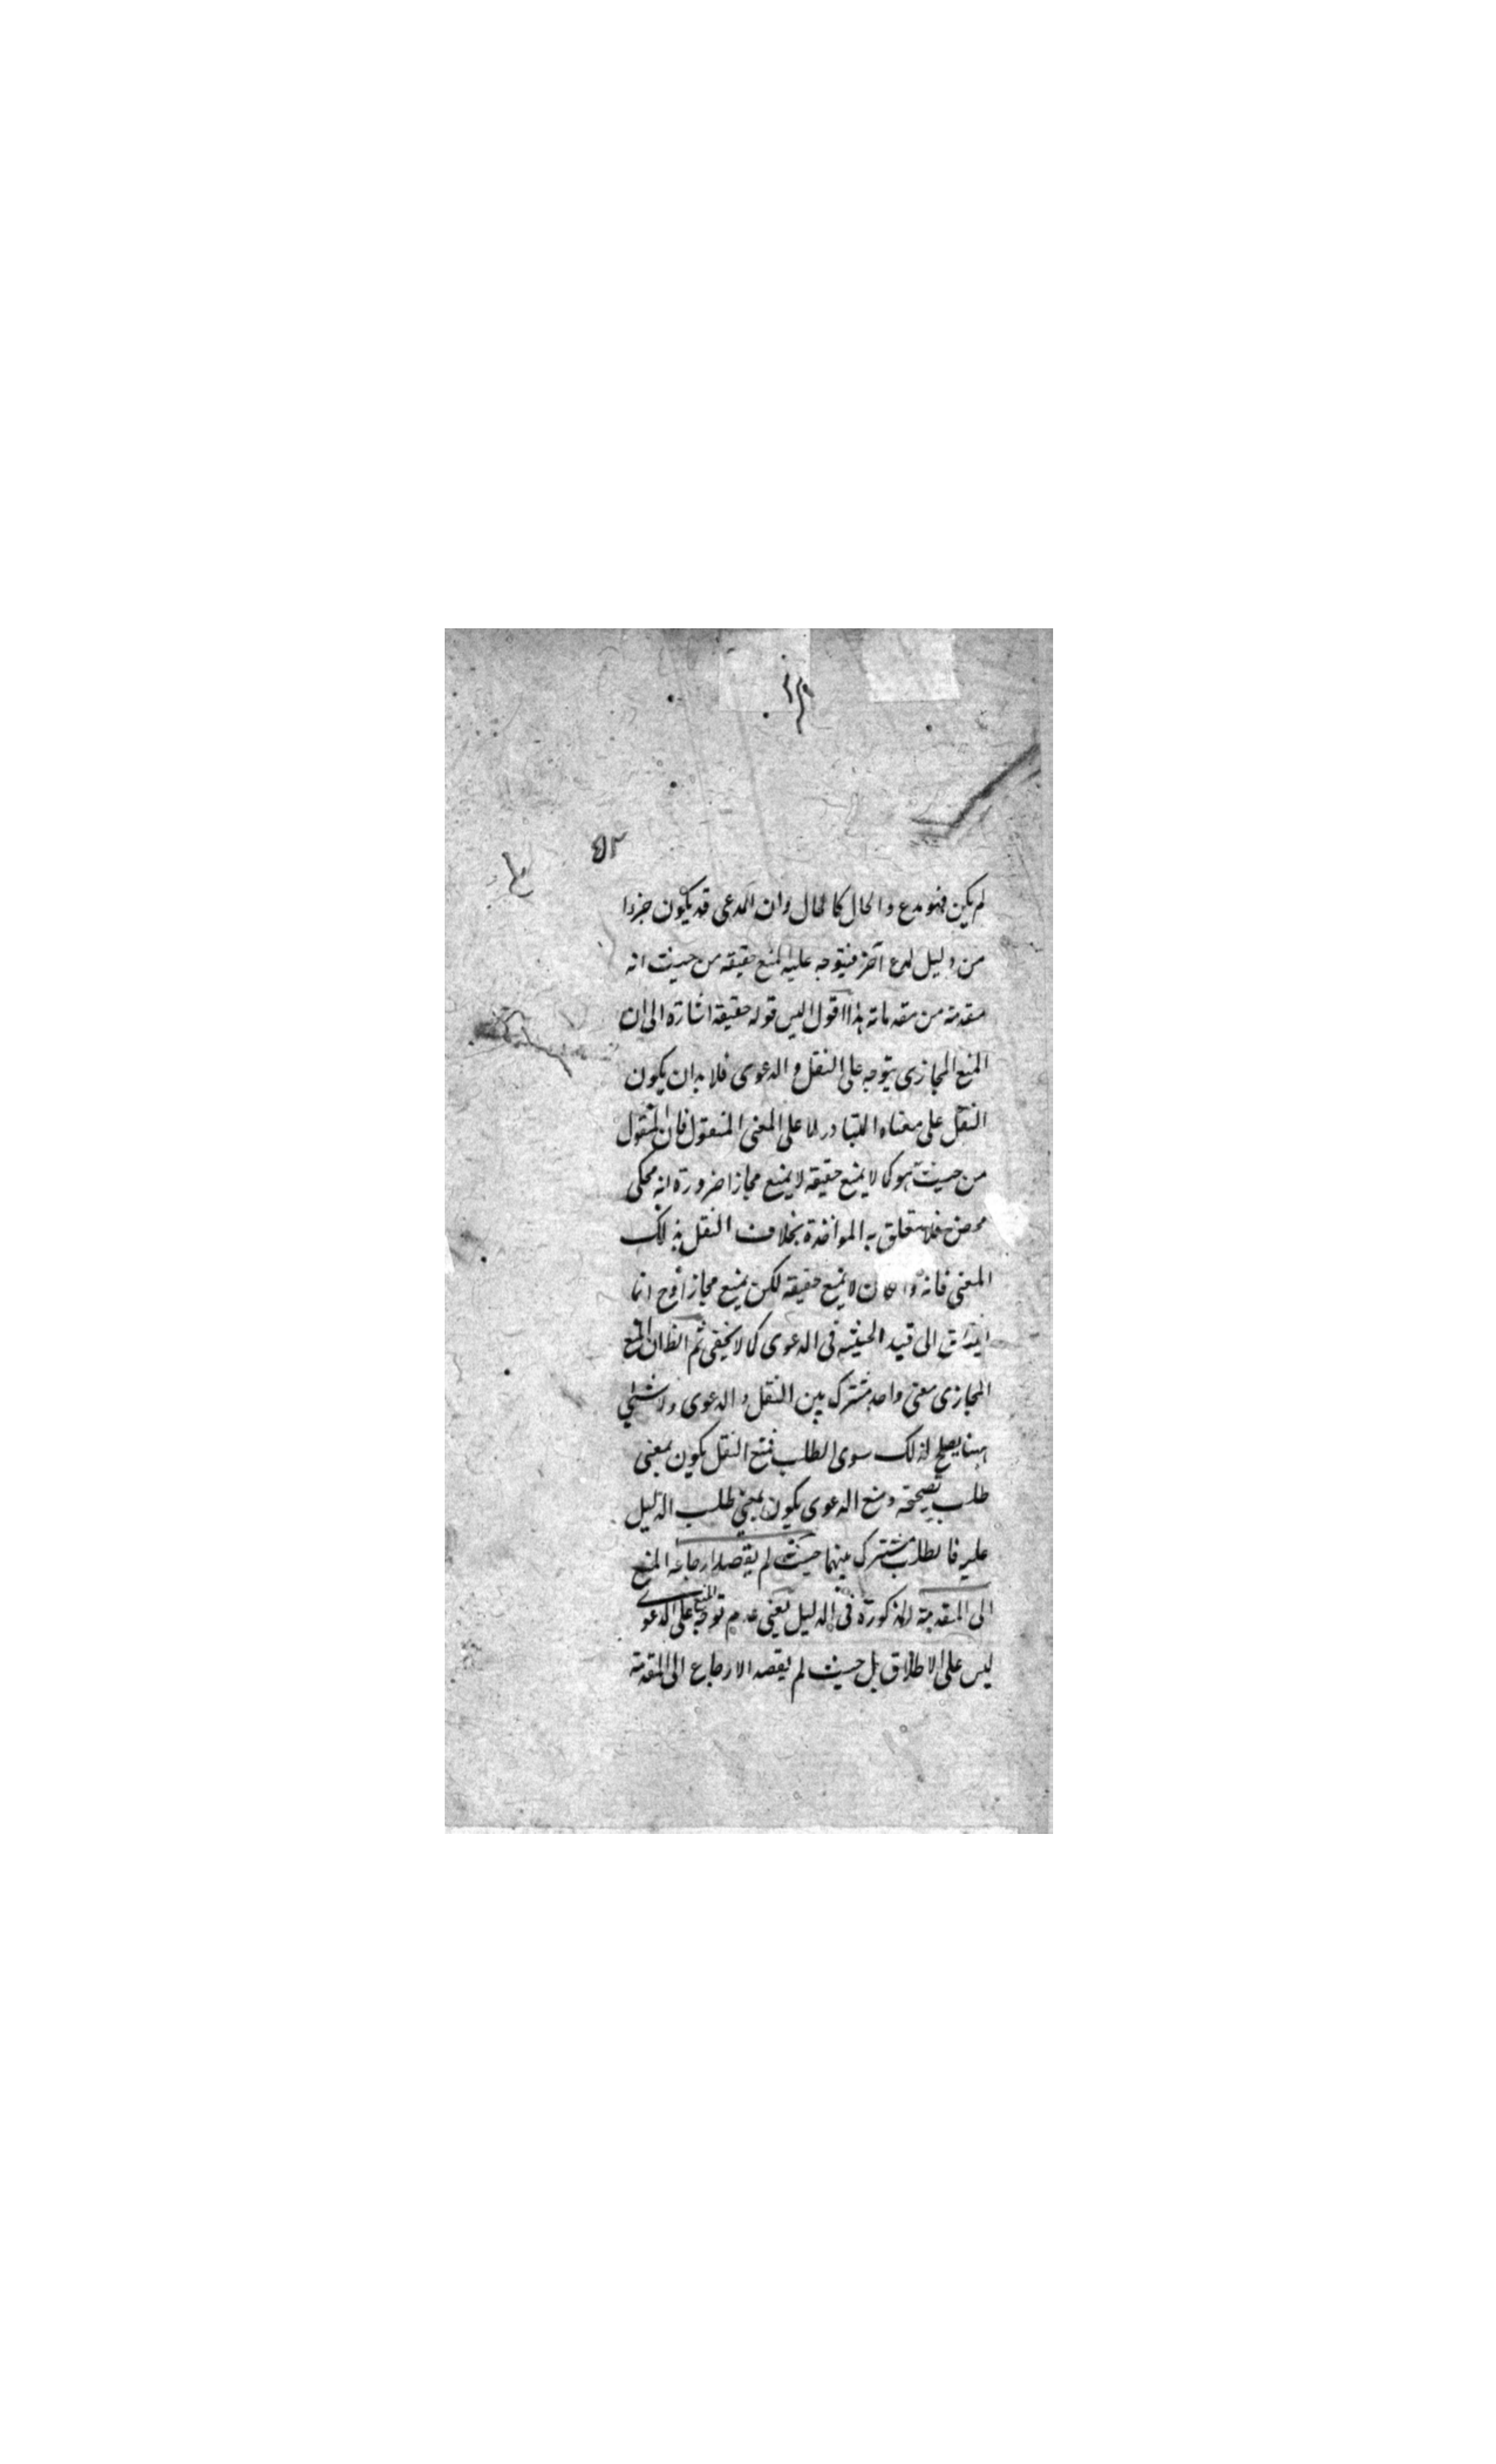 ۵۲
لم يكن فهو مدع والحال كالحال وان المدعى قد يكون جزءا
من دليل لمدع آخر فيتوجه عليه المنع حقيقة من حيث انه
مقدمة من مقدماته هذا اقول ليس قوله حقيقة اشارة الى ان
المنع المجازى يتوجه على النقل والدعوى فلا بد ان يكون
النقل على معناه المتبادر لا على المعنى المنقول فان المنقول
من حيث هو كما لا يمنع حقيقة لا يمنع مجازا ضرورة انه محكى
محض فلا يتعلق به المواخذة بخلاف النقل بذلك
المعنى فانه وان كان لا يمنع حقيقة لكن يمنع مجازا وح انما
الى قيد الحيثية فى الدعوى كما لا يخفى ثم الظ ان المنع
المجازى معنى واحد مشترك بين النقل والدعوى ولا شئ
ههنا يصلح لذلك سوى الطلب فمنع النقل يكون بمعنى
طلب تصحيحه ومنع الدعوى يكون بمعنى طلب الدليل
عليه فالطلب مشترك بينهما حيث لم يقصد ارجاعه المنع
الى المقدمة المذكورة فى الدليل يعنى عدم توجه المنع على الدعوى
ليس على الاطلاق بل حيث لم يقصد الارجاع الى المقدمة